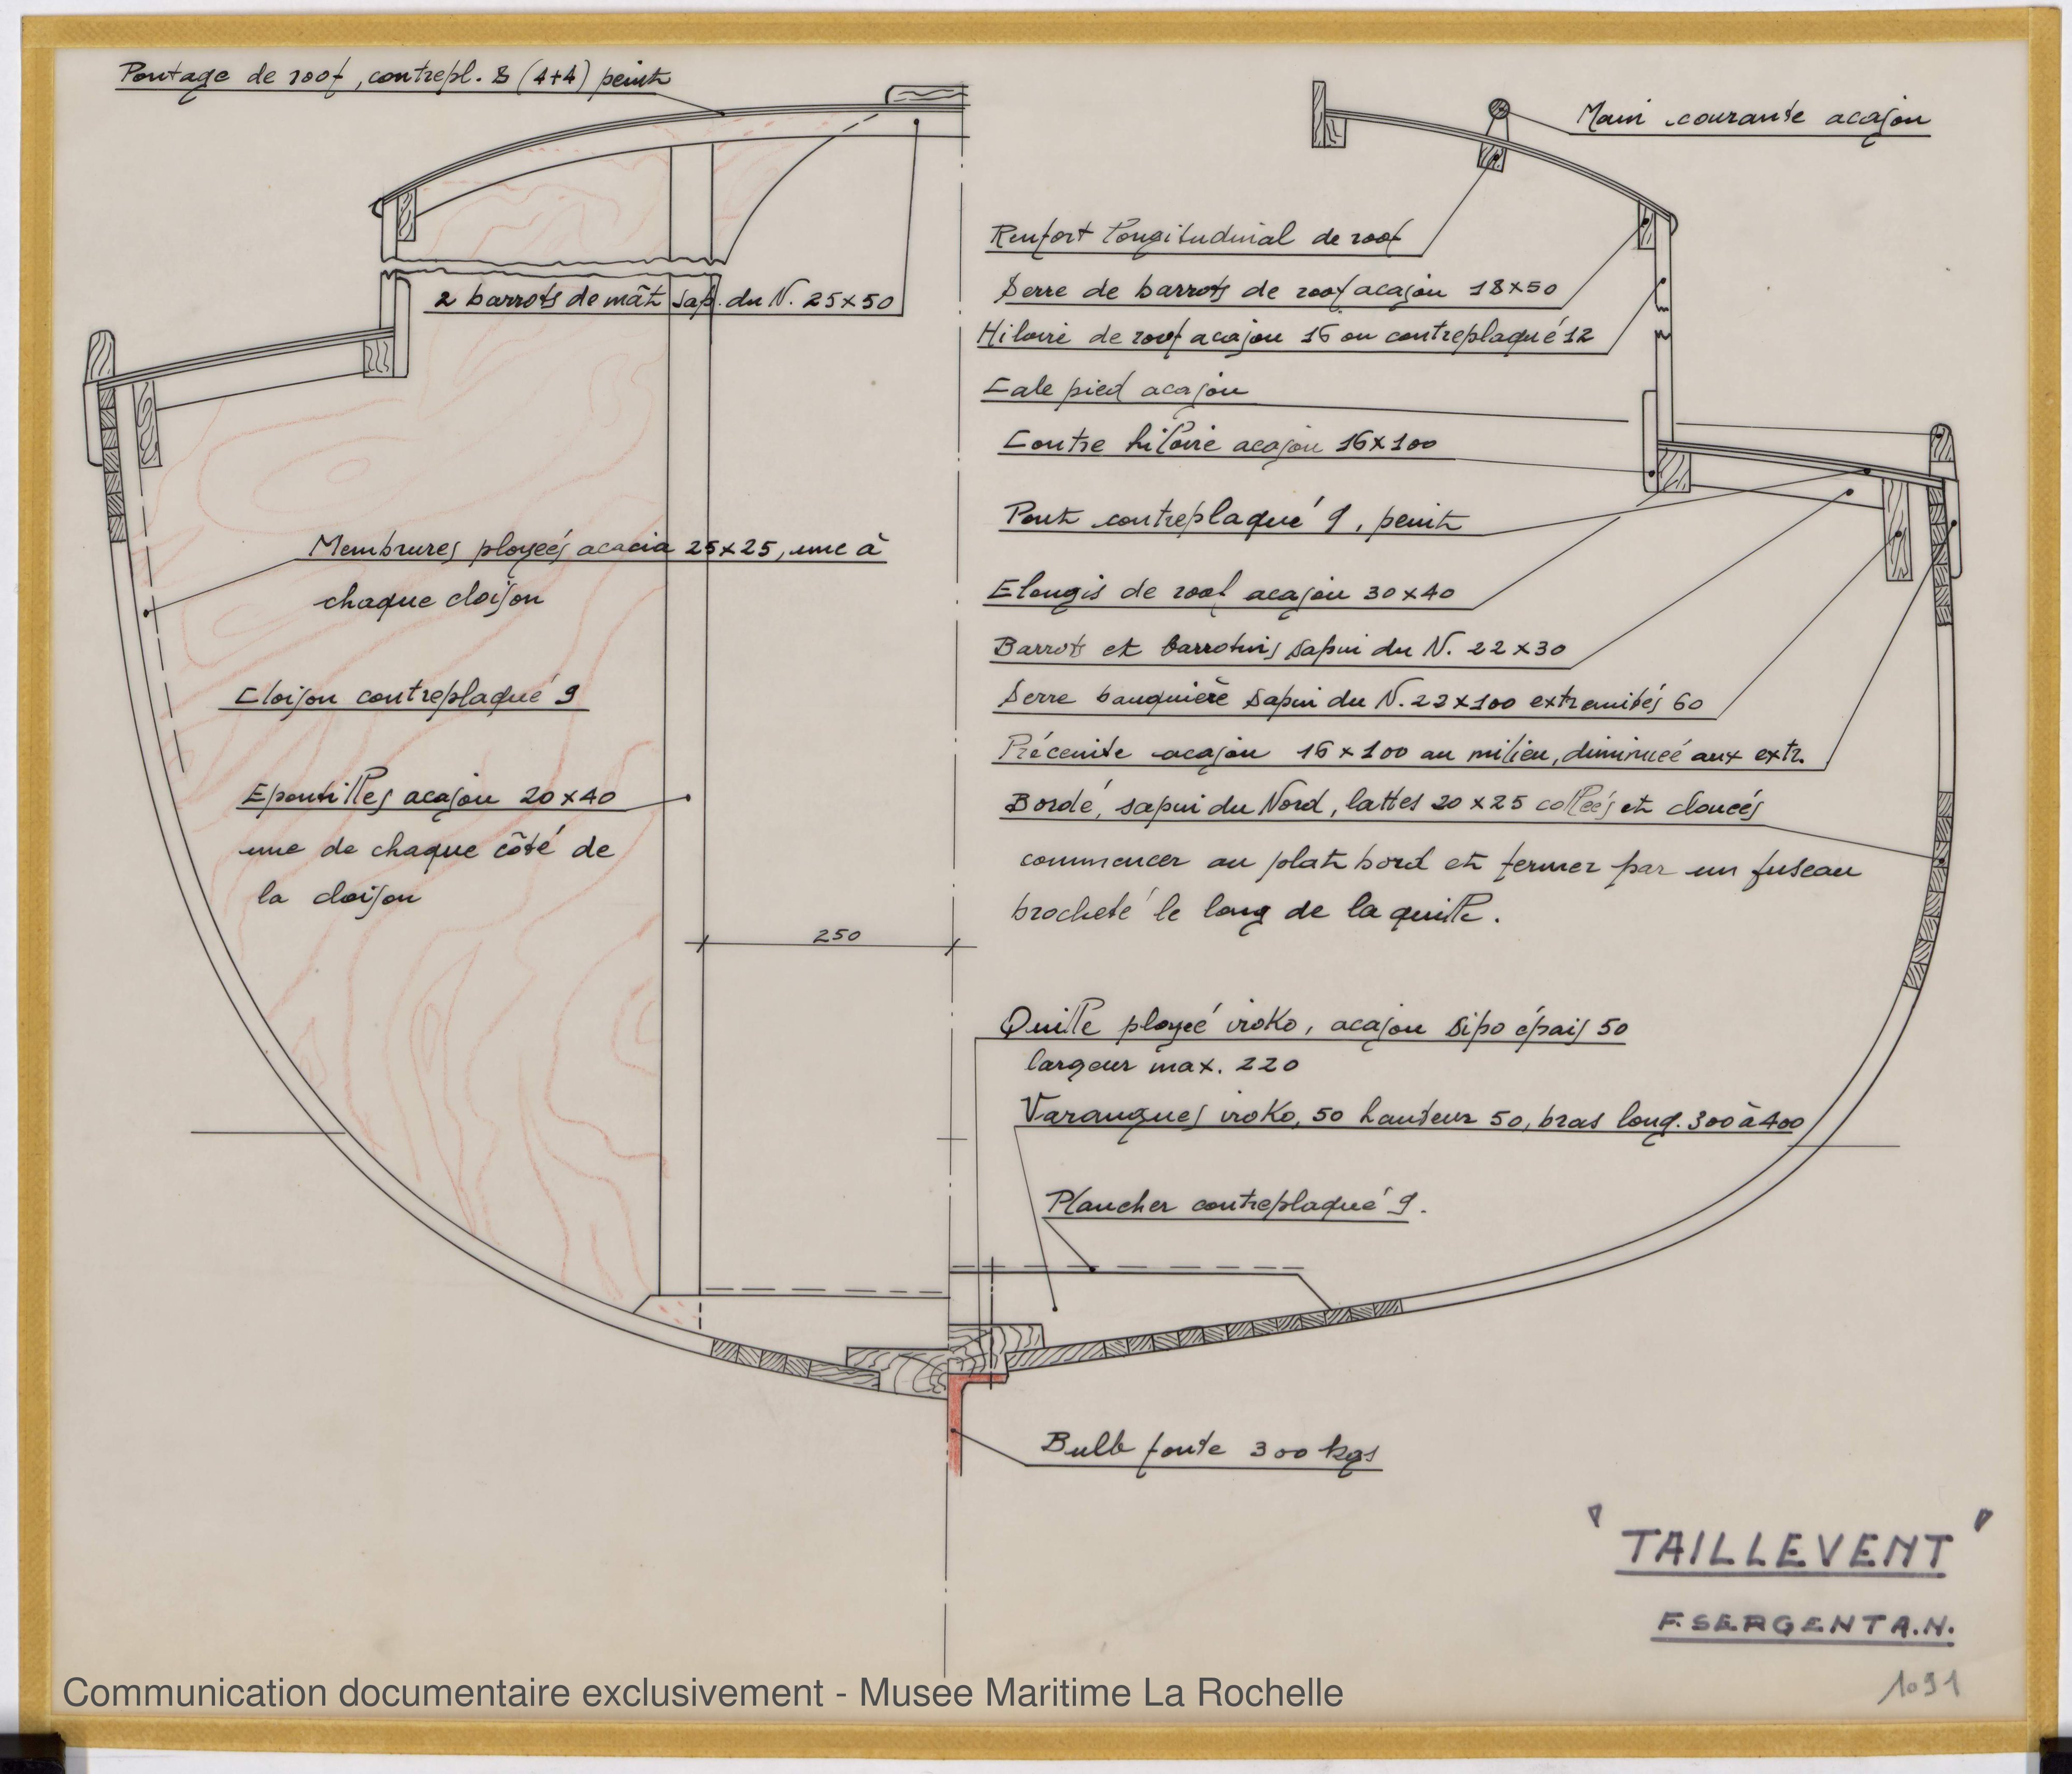 Pontage de roof, contrepl. 8 (4+4) peint
Main courante acajou
Renfort longitudinal de roof
Serre de barrots de roof acajou 18x50
2 barrots de mât sap. du N. 25x50
Hiloire de roof acajou 16 ou contreplaqué 12
Cale pied acajou
Contre hiloire acajou 16x100
Pont contreplaqué 9, peint
Membrures ployées acacia 25x25, une à
chaque cloison
Elongis de roof acajou 30x40
Barrots et barrotins sapin du N. 22x30
Cloison contreplaqué 9
Serre bauquière sapin du N. 22x100 extremités 60
Préceinte acajou 16x100 au milieu, diminuée aux extr.
Epontilles acajou 20x40
une de chaque côté de
la cloison
Bordé, sapin du Nord, lattes 20x25 collées et clouées
commencer au plat bord et fermer par un fuseau
brocheté le long de la quille.
250
Quille ployée iroko, acajou Sipo épais 50
largeur max. 220
Varangues iroko, 50 hauteur 50, bras long. 300 à 400
Plancher contreplaqué 9.
Bulb fonte 300 kgs
"TAILLEVENT"
F. SERGENT A.N.
1091
Communication documentaire exclusivement - Musee Maritime La Rochelle